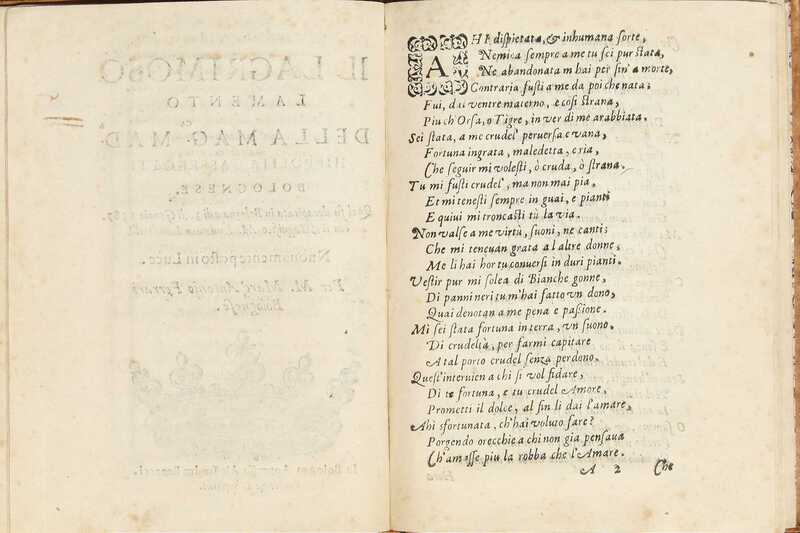 IL LAGRIMOSO
LAMENTO
DELLA MAG. MAD.
HIPPOLITA PASSEROTTI
BOLOGNESE,
Nuouamente posto in Luce.
Per M. Marc'Antonio Ferrari
Bolognese.
AHI dispietata, & inhumana sorte,
Nemica sempre a me tu sei pur stata,
Ne abandonata m hai per sin' a morte,
Contraria fusti a me da poi che nata;
Fui, dal ventre materno, e cosi strana,
Piu ch Orsa, o Tigre, in ver di me arabbiata.
Sei stata, a me crudel' peruersa e vana,
Fortuna ingrata, maledetta, e ria,
Che seguir mi volesti, ò cruda, ò strana.
Tu mi fusti crudel', ma non mai pia,
Et mi tenesti sempre in guai, e pianti
E quiui mi troncasti tù la via.
Non valse a me virtù, suoni, ne canti;
Che mi teneuan grata a l altre donne,
Me li hai hor tu conuersi in duri pianti.
Vestir pur mi solea di Bianche gonne,
Di panni neri tu m'hai fatto vn dono,
Quai denotan a me pena e passione.
Mi sei stata fortuna in terra, vn suono.
Di crudeltà, per farmi capitare
A tal porto crudel senza perdono.
Quest'interuien a chi si vol fidare,
Di te fortuna, e tu crudel Amore,
Prometti il dolce, al fin li dai l'amare,
Ahi sfortunata, ch'hai voluto fare?
Porgendo orecchie a chi non gia pensaua
Ch'amasse piu la robba che l'Amare.
A 2 Che